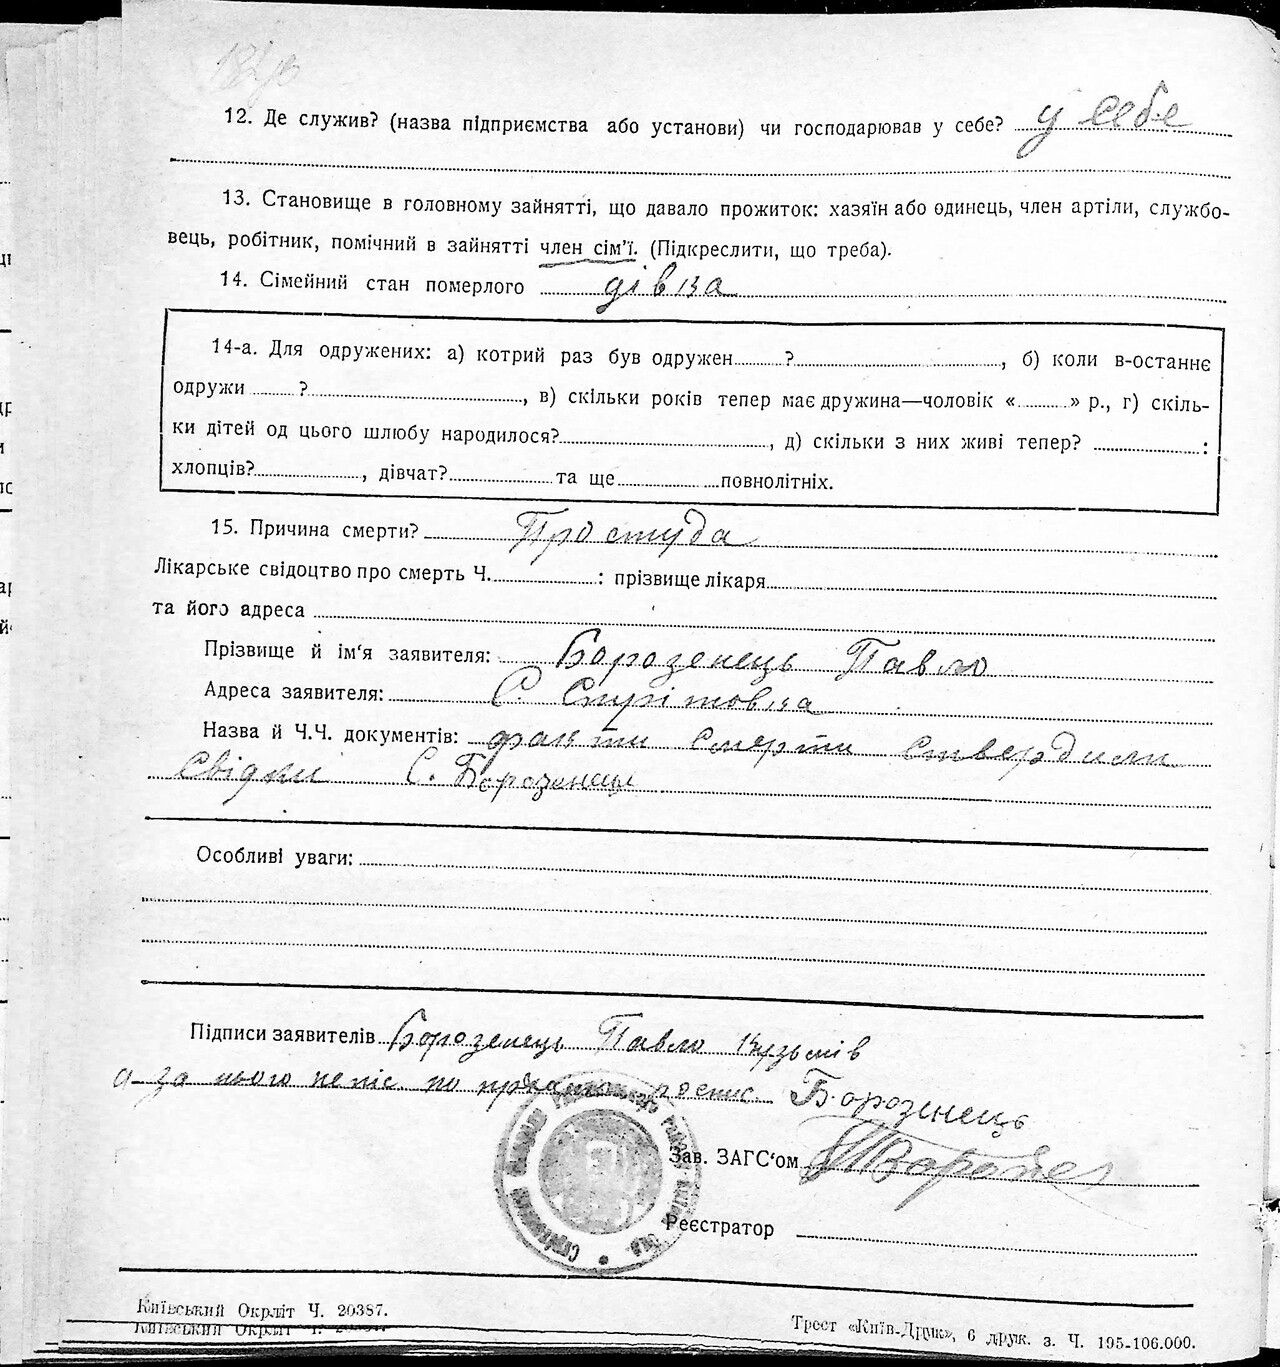 184зв
12. Де служив? (назва підприємства або установи) чи господарював у себе? у себе
13. Становище в головному зайнятті, що давало прожиток: хазяїн або одинець, член артіли, службо-
вець, робітник, помічний в зайнятті член сім'ї. (Підкреслити, що треба).
14. Сімейний стан померлого дівка
14-а. Для одружених: а) котрий раз був одружен ?, б) коли в-останнє
одружи ?, в) скільки років тепер має дружина—чоловік « » р., г) скіль-
ки дітей од цього шлюбу народилося?, д) скільки з них живі тепер? :
хлопців?, дівчат? та ще повнолітніх.
15. Причина смерти? Простуда
Лікарське свідоцтво про смерть Ч. : прізвище лікаря
та його адреса
Прізвище й ім'я заявителя: Борозенець Павло
Адреса заявителя: С. Стрітовка
Назва й Ч.Ч. документів: факти смерти ствердили
свідки С. Борозенець
Особливі уваги:
Підписи заявителів Борозенець Павло Кузьмів
а за нього непис. по росписс. Борозенець
Зав. ЗАГС'ом
Реєстратор
Київський Окрліт Ч. 20387.
Трест «Київ-Друк», 6 друк. з. Ч. 195-106.000.